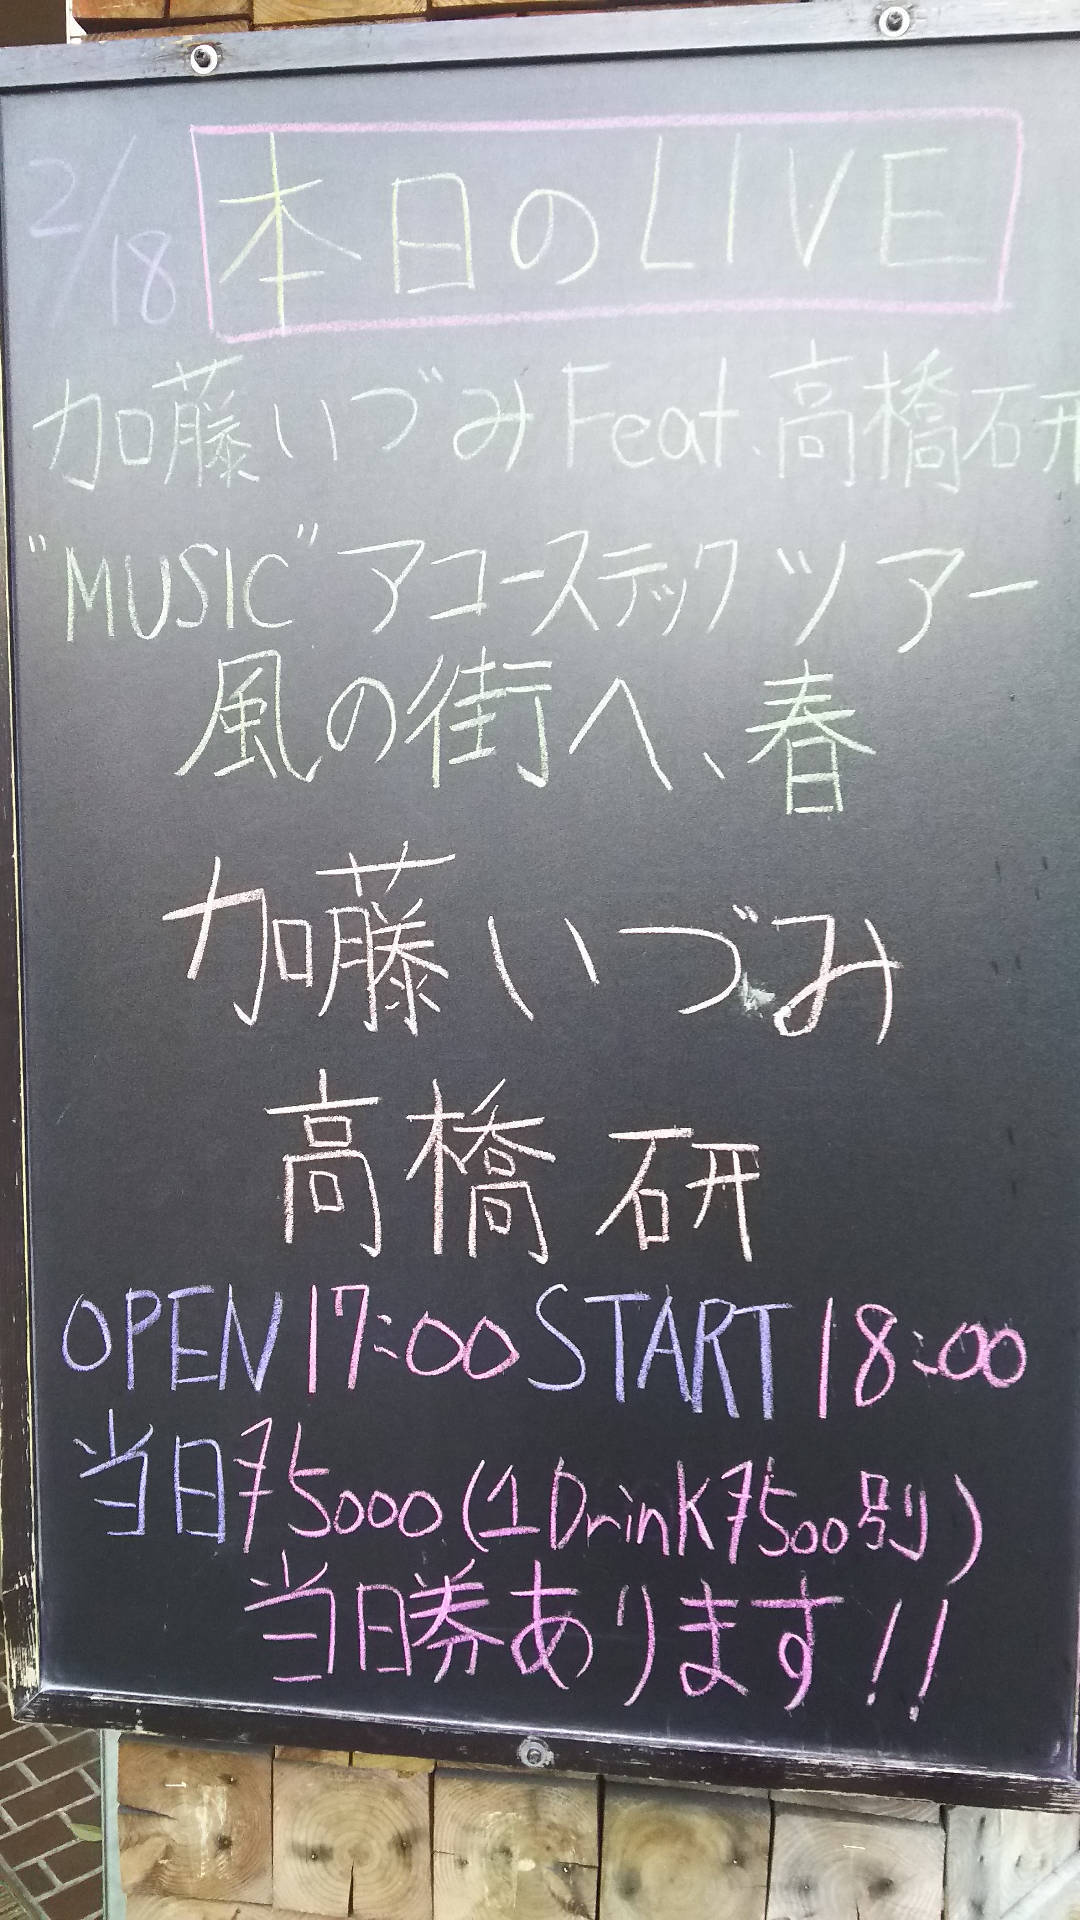 2/18 本日のLIVE
加藤いづみ Feat. 高橋研
"MUSIC" アコーステックツアー
風の街へ、春
加藤いづみ
高橋研
OPEN 17:00 START 18:00
当日 ¥5000 (1Drink ¥500別)
当日券あります!!